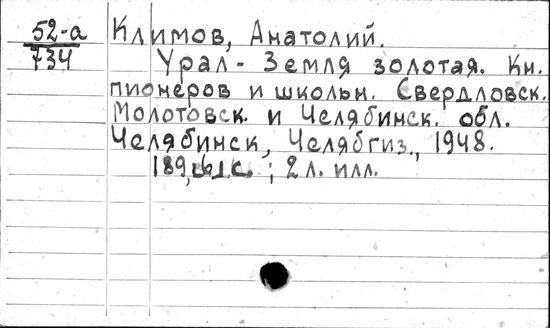 52-а
734
Климов, Анатолий.
Урал - Земля золотая. Кн.
пионеров и школьн. Свердловск.
Молотовск. и Челябинск. обл.
Челябинск, Челябгиз, 1948.
189, с.; 2 л. илл.